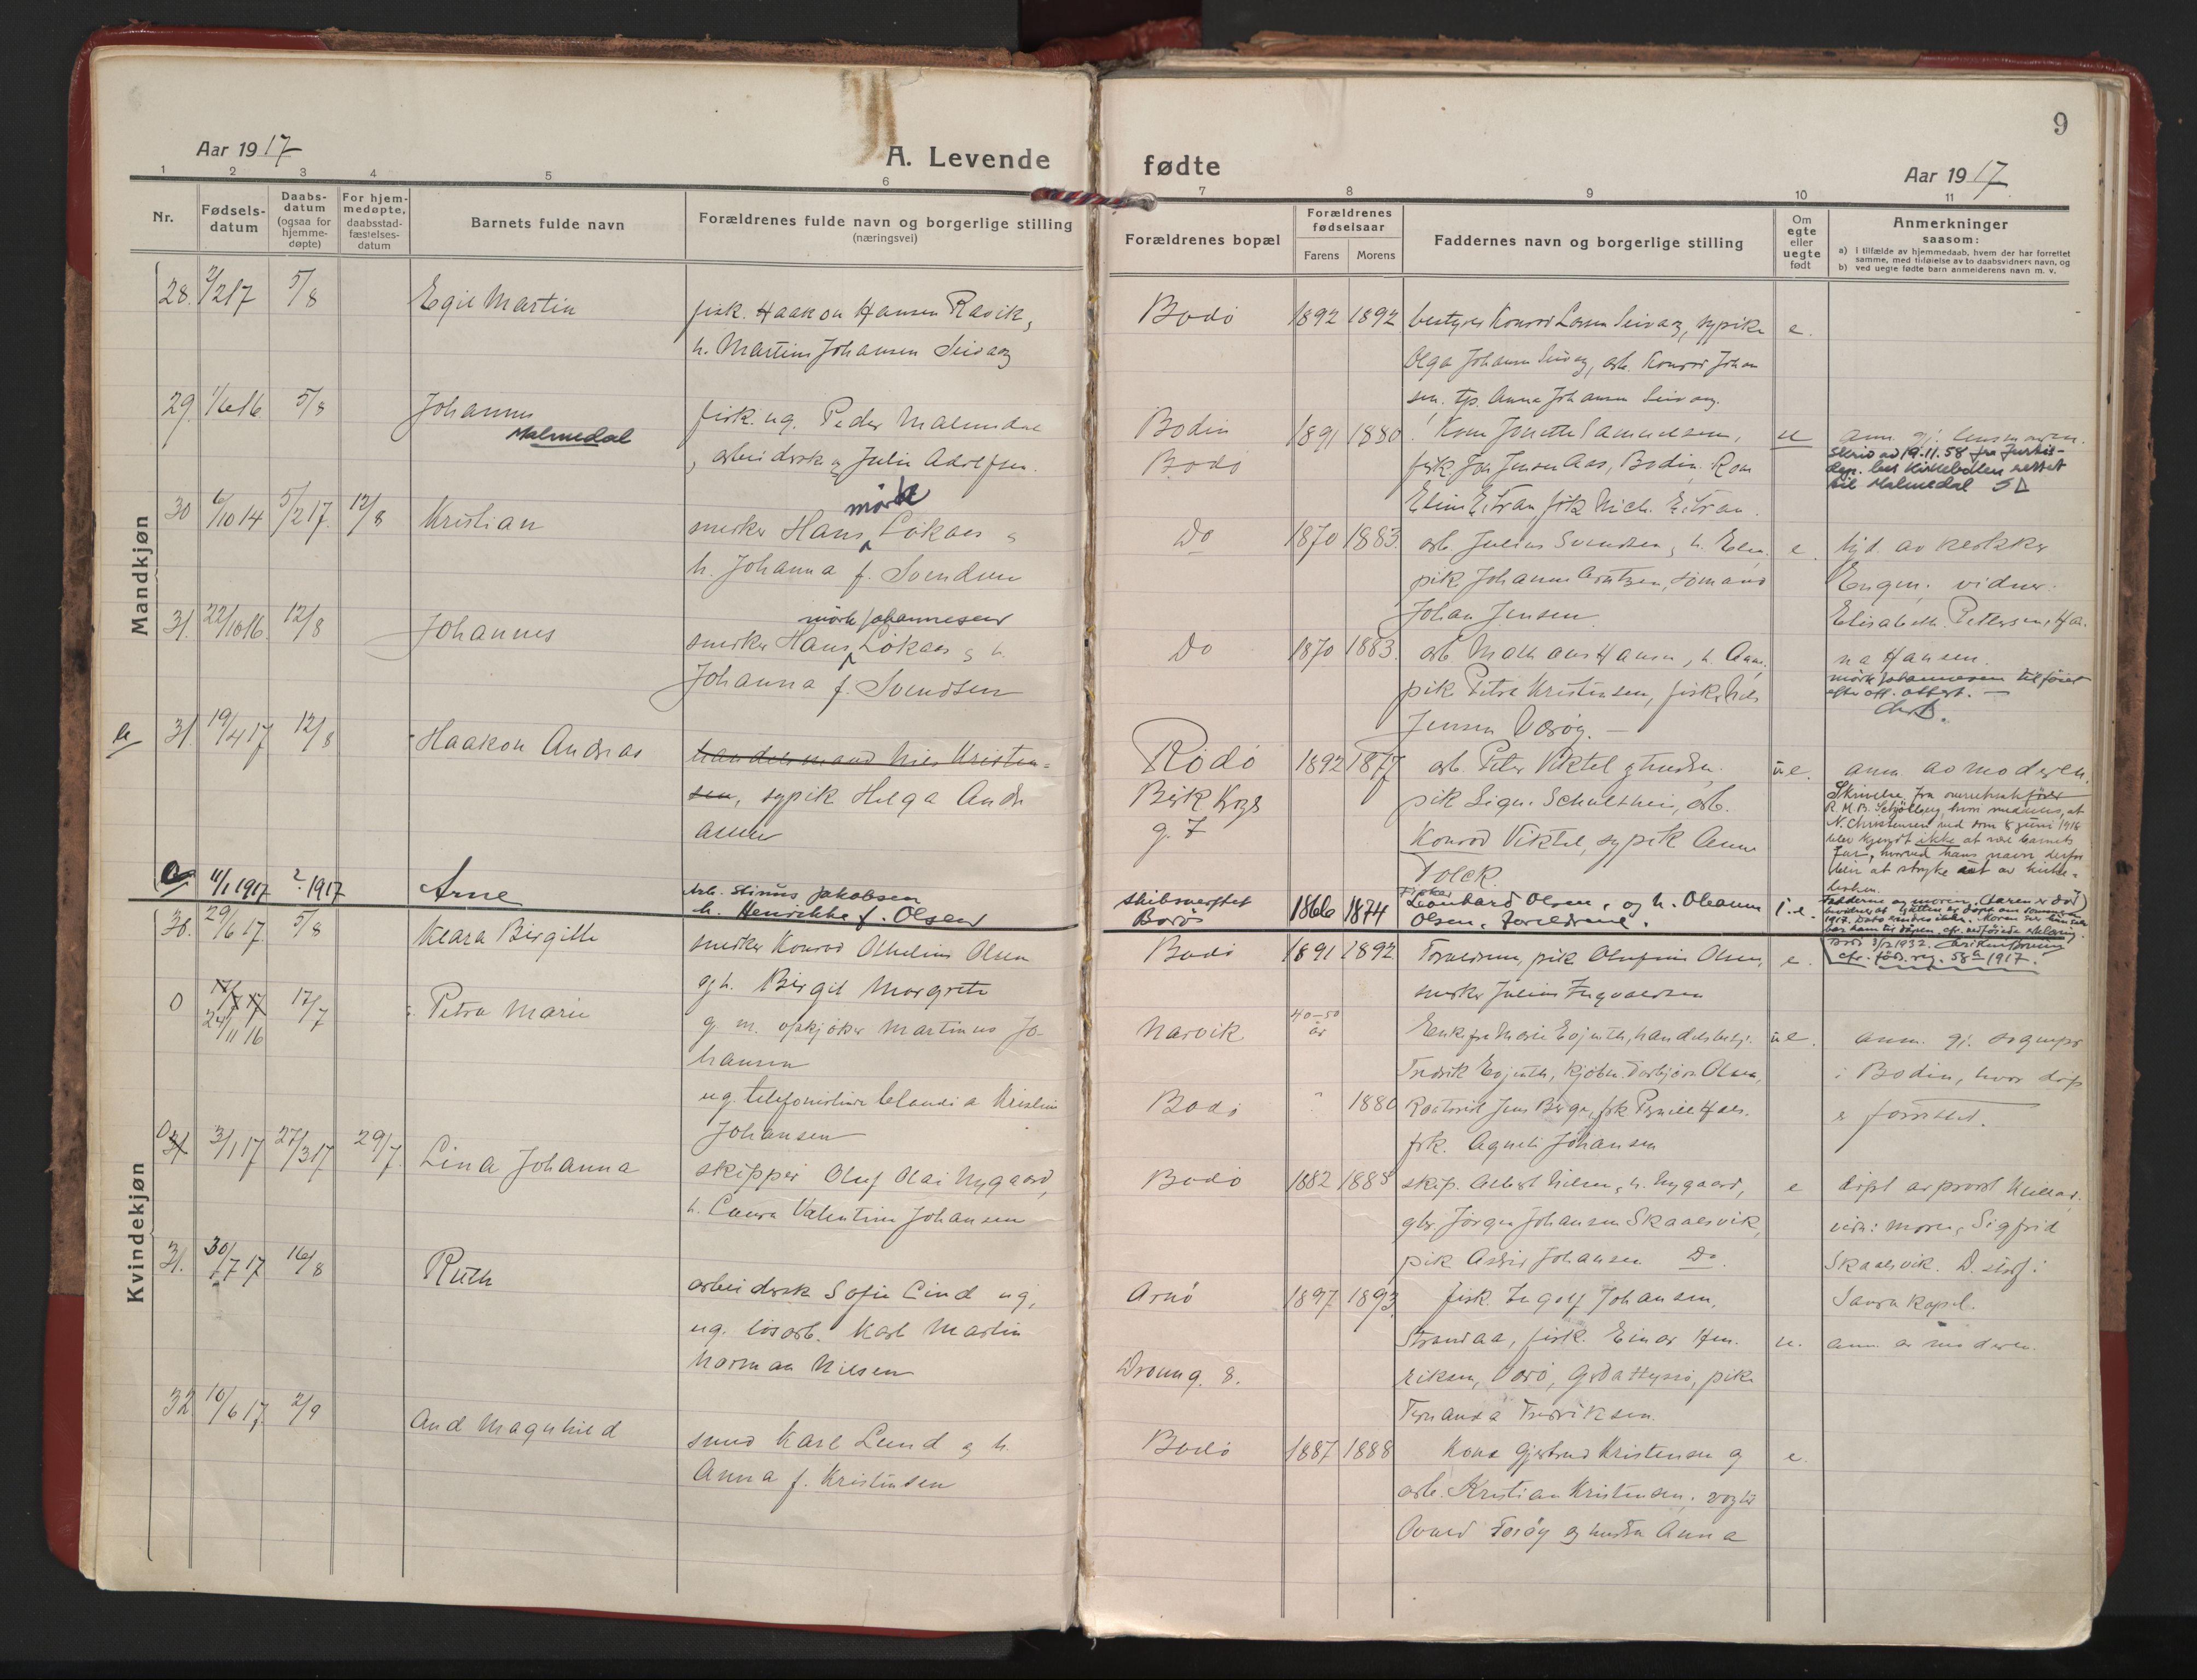 9
Aar 1917
A. Levende
fødte
Aar 1917
1 2 3 4 5 6 7 8 9 10 11
Nr.
Fødsels-
datum
Daabs-
datum
(ogsaa for
hjemme-
døpte)
For hjem-
medøpte,
daabsstad-
fæstelses-
datum
Barnets fulde navn
Forældrenes fulde navn og borgerlige stilling
(næringsvei)
Forældrenes bopæl
Forældrenes
fødselsaar
Farens Morens
Faddernes navn og borgerlige stilling
Om
egte
eller
uegte
født
Anmerkninger
saasom:
a) i tilfælde av hjemmedaab, hvem der har forrettet
samme, med tilføielse av to daabsvidners navn, og
b) ved uegte fødte barn anmelderens navn m. v.
Mandkjøn
28. 2/2 17 5/8 Egil Martin
fisk. Haakon Hansen Ravik,
h. Martine Johansen Seivaag
Bodø 1892 1892
bestyrer Konrad Larsen Seivaag, sypike
Olga Johansen Seivaag, arb. Konrad Johan
sen. tp. Anna Johansen Seivaag.
e.
29. 1/6 16 5/8 Johannes
Malmedal
fisk. ug. Peder Malmedal
, arbeidersk og Julie Adolfsen.
Bodin
Bodø
1891 1880
Kone Jonette Samuelsen,
fisk Jon Jensen Aas, Bodin. Kone
u
Skriv av 19.11.58 fra Justis-
dep. best kirkeboken rettet
til Malmedal SD
30 6/10 14 5/2 17. 12/8 Kristian
mørk
snekker Hans Løkaas og
h. Johanna f. Svendsen
Do 1870 1883.
arb. Julius Svendsen, h. Elen,
pike Johanne Arntzen, sømand
Johan Jensen
e.
hjd. av klokker
Engen. vidner:
Elisabeth Pettersen, Han
na Hansen.
31. 22/10 16. 12/8 Johannes
mørk Johannesen
snekker Hans Løkaas og h.
Johanna f. Svendsen
Do 1870 1883.
arb Mathias Hansen, h. Anna
pike Petra Kristensen, fisker Nils
Jensen Værøy.
mørk Johannesen tilføiet
efter off. attest.
a
31. 19/4 17 12/8 Haakon Andreas
handelsmand Nils Kristen-
sen, sypik Helga Andr
easen
Rødø
Bisk Krogs
g. 7
1892 1877
arb. Peter Viktel og hustru.
pik Signe Schultheis, arb.
Konrad Viktel, sypik Anna
Folck.
u.e.
anm. av moderen.
Skrivelse fra overretssakfører
hvori meddeles, at
N. Christensen ved dom 8 juni 1918
blev kjendt ikke at være barnets
far, hvorved hans navn derfor
blir at stryke ut av kirke-
boken.
a. 11/1 1917 ?. 1917 Arne
Arb. Stinus Jakobsen
h. Henrikke f. Olsen
Skibsverftet
Bodø
1866 1874
Fisker
Leonhard Olsen, og h. Oleanna
Olsen. Foreldrene.
cfr. fød. reg. 58 a 1917.
Kvindekjøn
30. 29/6 17. 5/8 Klara Birgitte
snekker Konrad Othelius Olsen
og h. Birgit Margrete
Bodø 1891 1892
Forældrene, pike Olufine Olsen,
snekker Julius Ingvaldsen
e.
0 24/11 16 17/7 Petra Marie
g. m. opkjøper Martinus Jo-
hansen
ug. telefonistinde Claudia Kristine
Johansen
Narvik
Bodø
40-50
år
1880
Enkefru Marie Evjenth, handelsbetj.
Fredrik Evjenth, kjøbm. Torbjørn Olsen,
frk. Agnete Johansen
u.e.
anm. gj. sognepr
i Bodin, hvor dåp
er forrettet.
0 31 3/1 17 27/3 17 29/7. Lina Johanna
skipper Oluf Olai Nygaard,
h. Laura Valentine Johansen
Bodø 1882 1885
skip. Albert Nilsen, h. Nygaard,
gbr. Jørgen Johansen Skaalsvik,
pik Astrid Johansen Do.
e
døpt av prost
vidn: moren, Sigfrid
Skaalsvik. D. stadf. i
Saura Kapel.
31. 30/7 17 16/8 Ruth
arbeidersk Sofie Lind ug,
ug. løsarb. Karl Martin
Norman Nilsen
Arnø
Dronng. 8.
1897 1893
fisk. Ingolf Johansen,
Strandaa, fisk. Einar Hen.
riksen,
pike
Fernanda Fredriksen.
u.
anm. av moderen.
32 10/6 17. 2/9 Aud Magnhild
smed Karl Lund og h.
Anna f. Kristensen
Bodø 1887 1888
Kone Gjertrud Kristensen og
arb. Kristian Kristensen,
og hustru Anna
e.